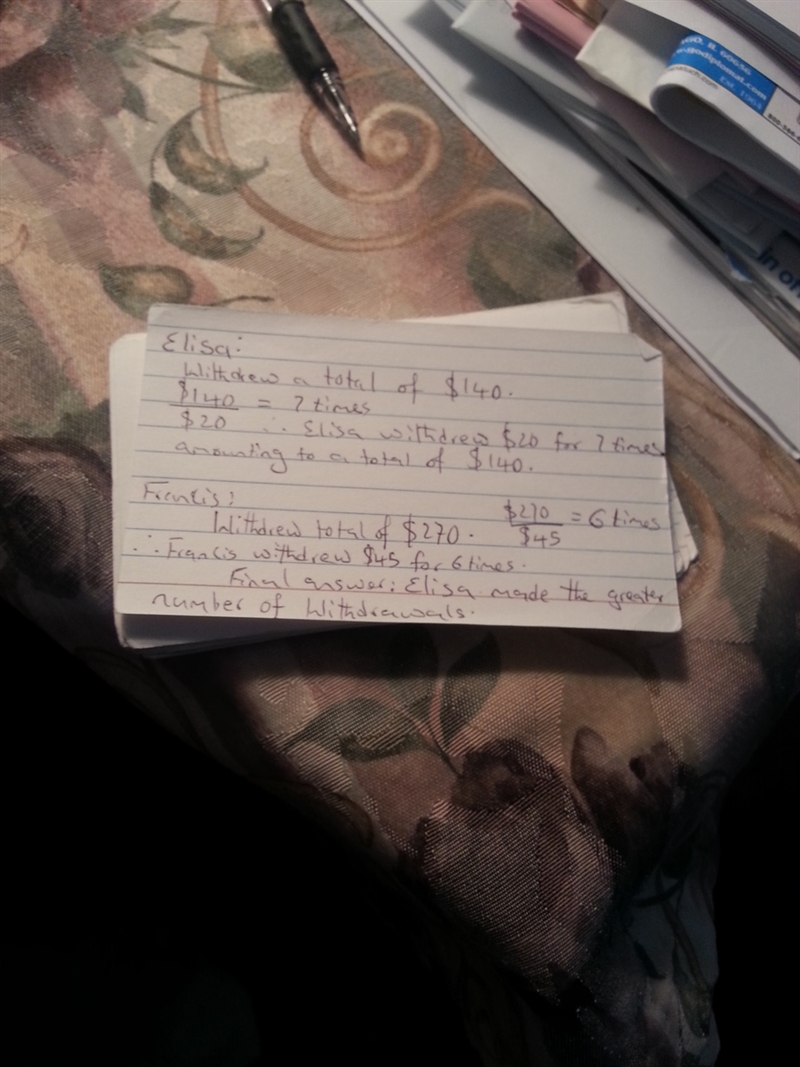 GO, IL 60656
w.godiplomat.com
Est. 1964
Elisa:
Withdrew a total of $140.
$140 = 7 times
$20 ∴ Elisa withdrew $20 for 7 times
amounting to a total of $140.
Francis:
Withdrew total of $270. $270 = 6 times
$45
∴ Francis withdrew $45 for 6 times.
Final answer: Elisa made the greater
number of Withdrawals.